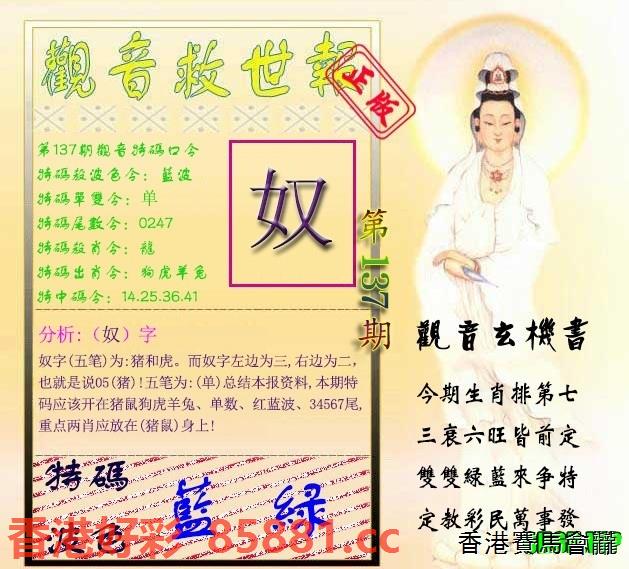 觀音救世報
正版
第137期觀音特碼口令
特碼殺波色令: 藍波
特碼單雙令: 单
特碼尾數令: 0247
特碼殺肖令: 龍
特碼出肖令: 狗虎羊兔
特中碼令: 14.25.36.41
奴
第137期
分析:（奴）字
奴字(五笔)为:猪和虎。而奴字左边为三,右边为二,
也就是说05(猪)!五笔为:(单)总结本报资料,本期特
码应该开在猪鼠狗虎羊兔、单数、红蓝波、34567尾,
重点两肖应放在(猪鼠)身上!
特碼
波色
藍 綠
觀音玄機書
今期生肖排第七
三衰六旺皆前定
雙雙綠藍來爭特
定教彩民萬事發
香港好彩 85881.cc
香港賽馬會